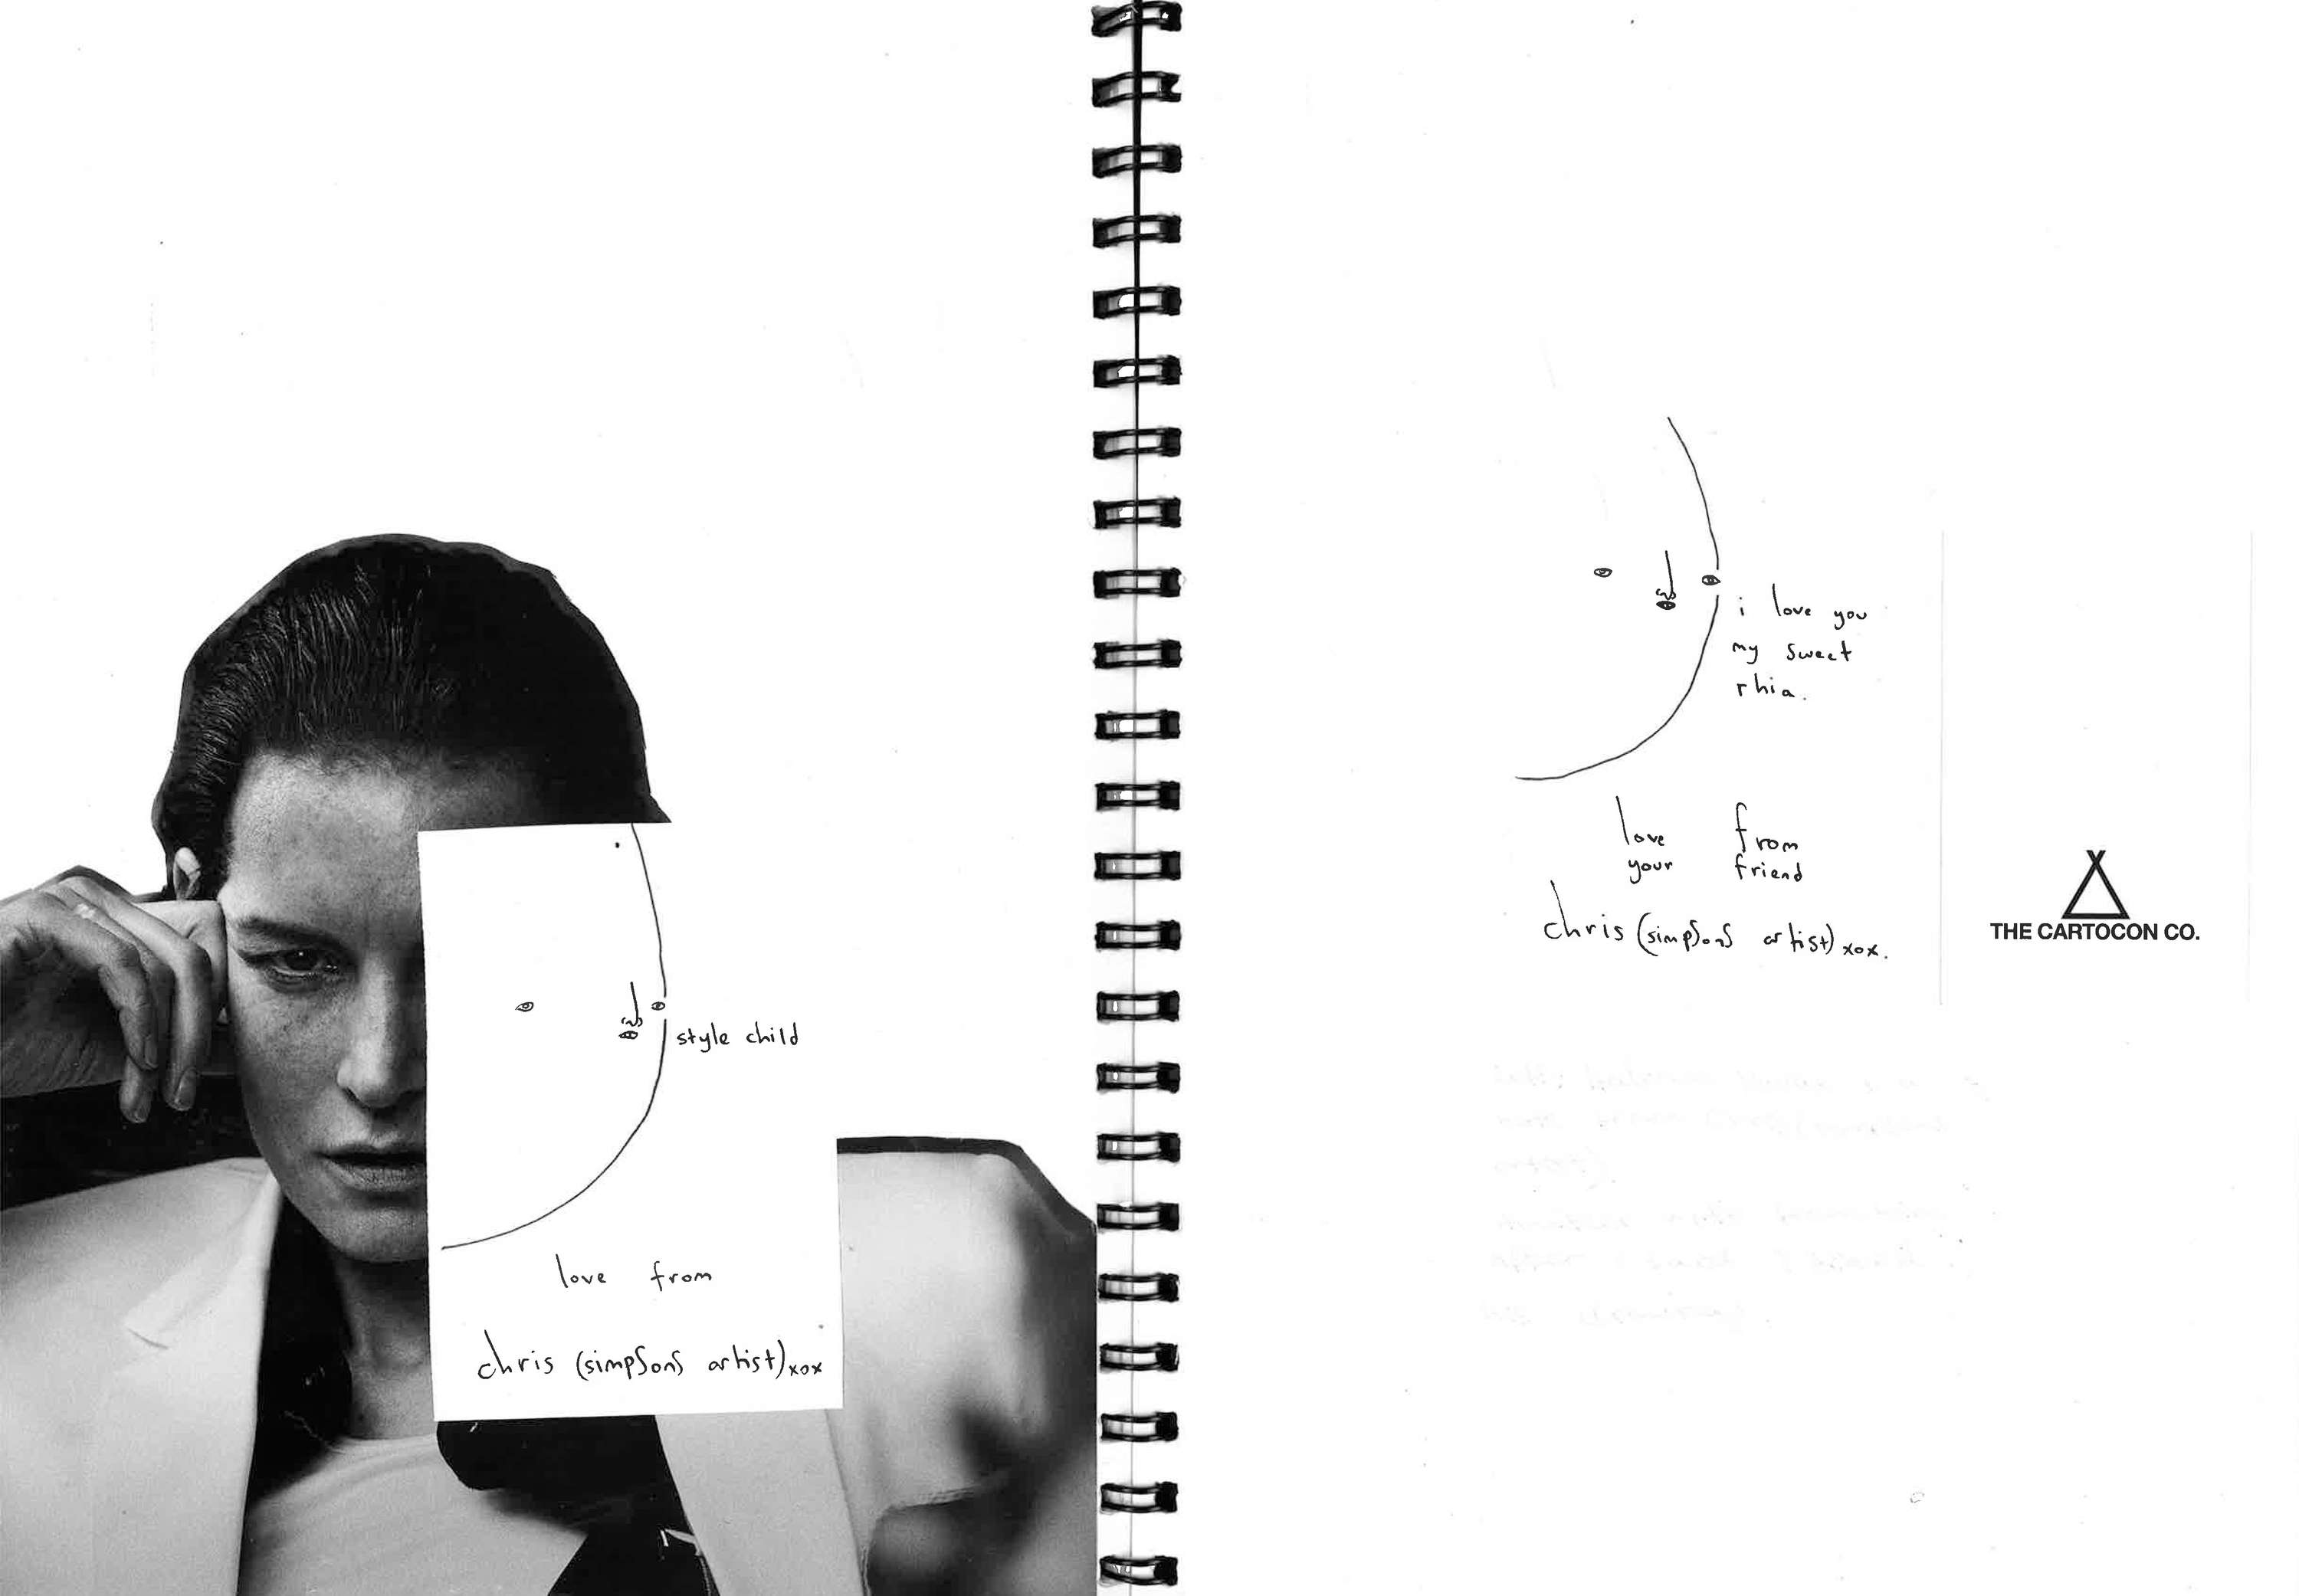 style child
love from
chris (simpsons artist) xox
i love you
my sweet
rhia.
love from
your friend
chris (simpsons artist) xox.
THE CARTOCON CO.